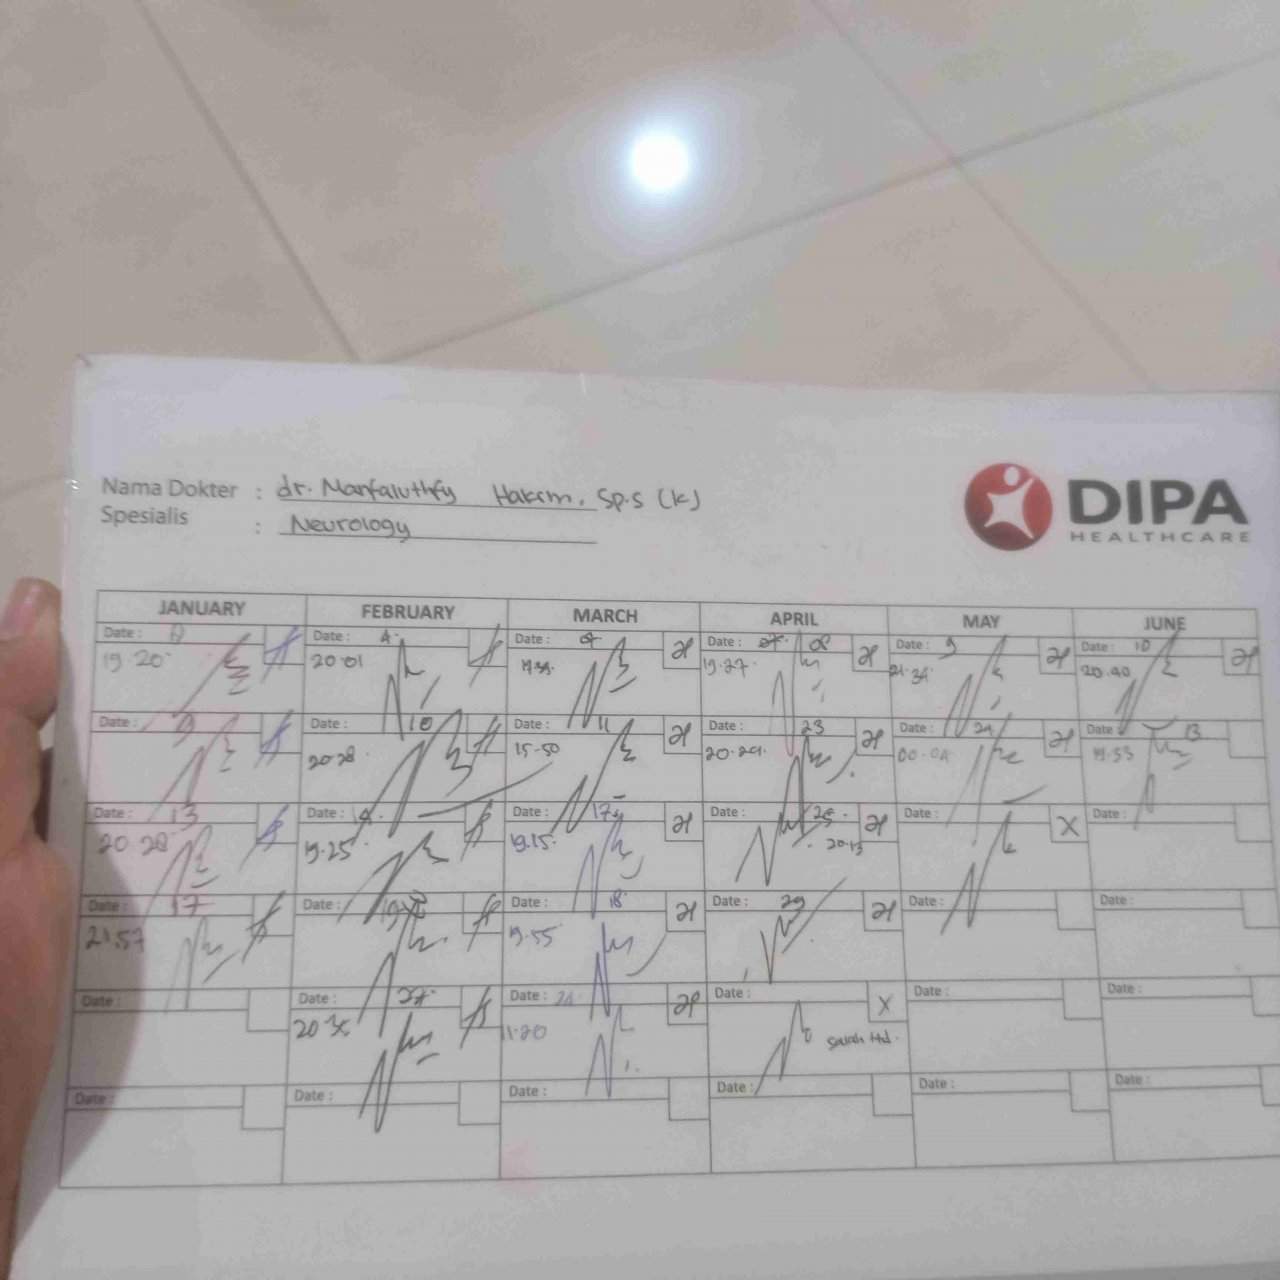 Nama Dokter : dr. Manfaluthfy Hakim, Sp.S (K)
Spesialis : Neurology
DIPA
HEALTHCARE
JANUARY FEBRUARY MARCH APRIL MAY JUNE
Date : Date : 4. Date : Date : 08 Date : 9 Date : 10
19.20 20.01 19.27. 21.34 20.40
Date : 9 Date : 10 Date : 11 Date : 23 Date : 24 Date : 13
20.28. 15.50 20.29. 19.53
Date : 13 Date : Date : 17 Date : 25. Date : Date :
20.28 19.25 19.15. 20.13 X
Date : 17 Date : Date : 18 Date : 29 Date : Date :
21.57 19.55
Date : Date : 27. Date : Date : Date : Date :
20.35 11.20 X
Salah Ttd.
Date : Date : Date : Date : Date : Date :